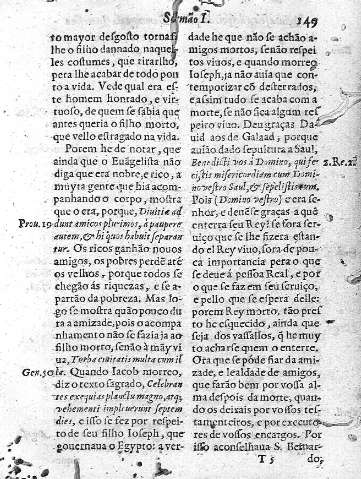 Sermão I.
149
to mayor desgosto tornar
lhe o filho dannado naquel
les costumes, que tirarlho,
pera lhe acabar de todo pon
to a vida. Vede qual era es-
te homem honrado, e vir-
tuoso, de quem se sabia que
antes queria o filho morto,
que vello estragado na vida.
Porem he de notar, que
ainda que o Euãgelista não
diga que era nobre, e rico, a
muyta gente que hia acom-
panhando o corpo, mostra
que o era, porque, Diuitiæ ad
Prou. 19
dunt amicos plurimos, à paupere
autem, & hi quos habuit separan
tur. Os ricos ganhão nouos
amigos, os pobres perdẽ até
os velhos, porque todos se
chegão ás riquezas, e se a-
parrão da pobreza. Mas lo-
go se mostra quão pouco du
ra a amizade, pois o acompa
nhamento não se fazia ja ao
filho morto, senão à mãy vi
ua, Torba ciuitatis multa cum il
Gen. 50
la. Quando Iacob morreo,
diz o texto sagrado, Celebran
tes exequias planctu magno, atq;
vehementi impleuerunt septem
dies, e isso se fez por respei-
to de seu filho Ioseph, que
gouernaua o Egypto: a ver-
dade he que não se achão a-
migos mortos, senão respei
tos viuos, e quando morreo
Ioseph, ja não auia que con-
temporizar cõ desterrados,
e assim tudo se acaba com a
morte, se não fica algum res
peiro viuo. Deu graças Da-
uid aos de Galaad, porque
auião dado sepultura a Saul,
Benedicti vos à Domino, qui fe-
2. Re. 2.
cistis misericordiam cum Domi-
no vestro Saul, & sepelistis eum,
Pois (Domino vestro) e era se-
nhor, e denẽse graças a quẽ
enterra seu Rey? se fora ser-
uiço que se lhe fizera estan-
do el Rey viuo, fora de pou-
ca importancia pera o que
se deue á pessoa Real, e por
o que se faz em seu seruiço,
e pello que se espera delle:
porem Rey morto, tão pres
to he esquecido, ainda que
seja dos vassallos, q̃ he muy
to achar se quem o enterre.
Ora que se póde fiar da ami-
zade, e lealdade de amigos,
que farão bem por vossa al-
ma despois da morte, quan-
do os deixais por vossos tes-
tamenteiros, e por executo-
res de vossos encargos. Por
isso aconselhaua S. Bernar-
T 5
do,